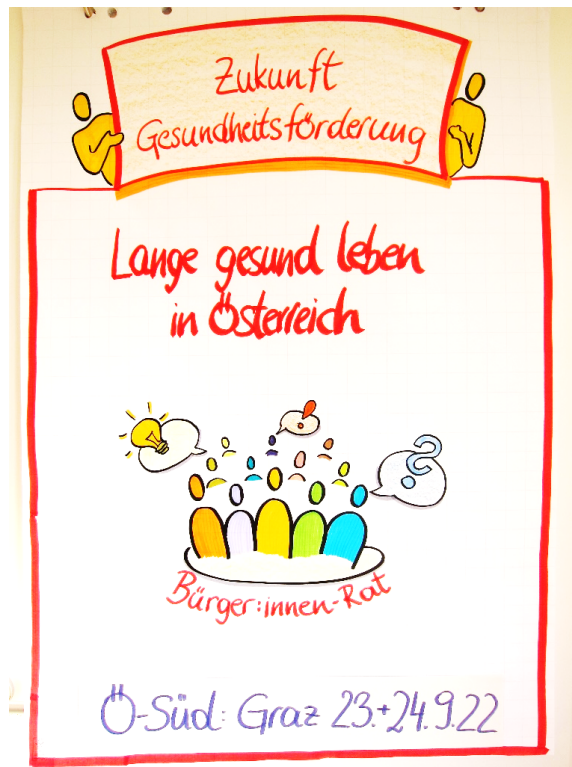 Zukunft
Gesundheitsförderung
Lange gesund leben
in Österreich
Bürger:innen-Rat
Ö-Süd: Graz 23.+24.9.22